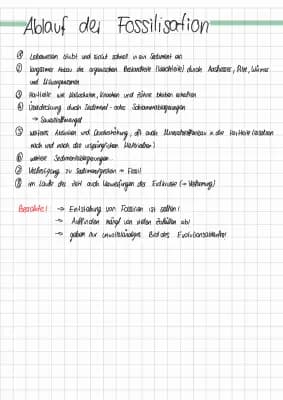 Ablauf der Fossilisation
① Lebewesen stirbt und sinkt schnell in ein Sediment ein
② langsamer Abbau der organischen Bestandteile (Weichteile) durch Aasfresser, Pilze, Würmer
und Mikroorganismen
③ Hartteile wie Kalkschalen, Knochen und Zähne bleiben erhalten
④ Überdeckung durch Sediment- oder Schlammablagerungen
→ Sauerstoffmangel
⑤ weiteres Absinken und, oft auch Mineralstoffeinbau in die Hartteile (ersetzen
nach und nach das ursprüngliche Material)
⑥ weitere Sedimentablagerungen
⑦ Verfestigung zu Sedimentgestein → Fossil
⑧ im Laufe der Zeit auch Verwerfungen der Erdkruste (→)
Beachte! → Entstehung von Fossilien ist selten!
→ Auffinden hängt von vielen Zufällen ab!
→ geben nur unvollständiges Bild des